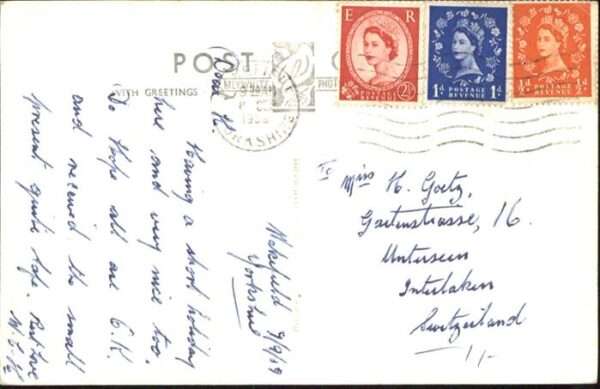 POST C
WITH GREETINGS
PHOT
YORKSHIRE
E R
POSTAGE
REVENUE
2½d
1d 1d
POSTAGE
REVENUE
½d ½d
POSTAGE
REVENUE
Wakefield 9/9/59
Yorkshire
Dear K.
Having a short holiday
here and very nice too.
Do hope all are O.K.
and received the small
present quite safe.
To
Miss K. Goetz,
Gartenstrasse, 16.
Unterseen
Interlaken
Switzerland